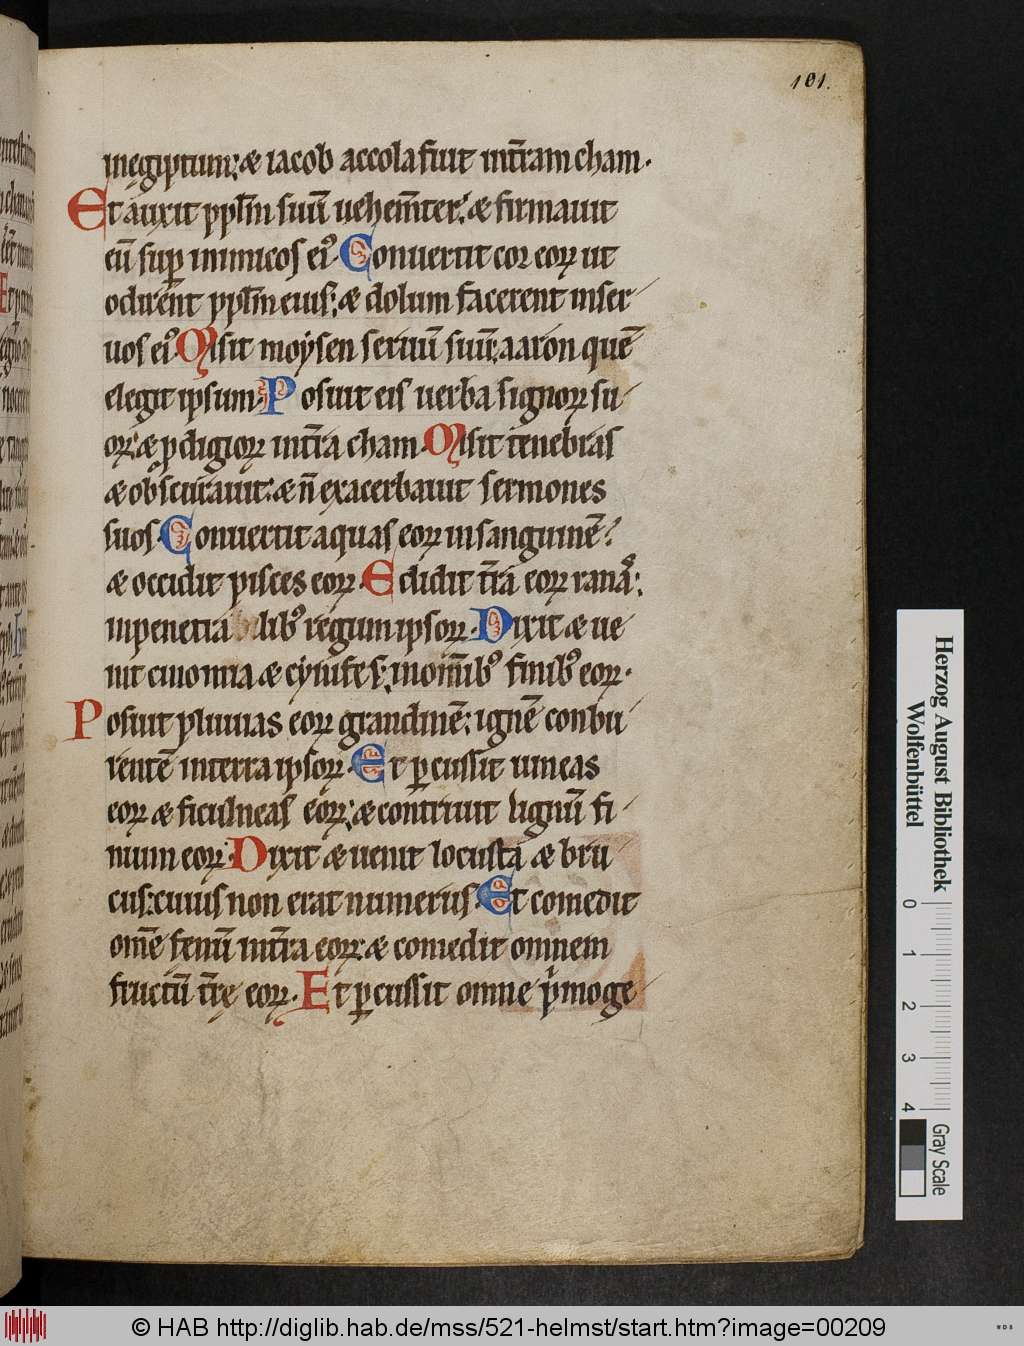 101.
inęgiptum; & iacob accola fuit int̄ram cham.
Et auxit ppl̄m suū uehem̄ter; & firmauit
eū suꝑ inimicos eiꝰ. Conuertit cor eoꝝ ut
odirent ppl̄m eius; & dolum facerent inser
uos eiꝰ. Misit moẏsen seruū suū; aaron quē
elegit ipsum. Posuit eis uerba signoꝝ su
oꝝ; & pdigioꝝ int̄ra cham. Misit tenebras
& obscurauit; & n̄ exacerbauit sermones
suos. Conuertit aquas eoꝝ in sanguinē;
& occidit pisces eoꝝ. Edidit t̄ra eoꝝ ranas;
inpenetra libꝰ regum ipsoꝝ. Dixit & ue
nit cinomia & cẏnifes; inom̄ibꝰ finibꝰ eoꝝ.
Posuit pluuias eoꝝ grandinē; ignē conbu
rentē interra ipsoꝝ. Et ꝑcussit uineas
eoꝝ & ficulneas eoꝝ; & contriuit lignū fi
nium eoꝝ. Dixit & uenit locusta & bru
cus; cuius non erat numerus. Et comedit
om̄e fenū int̄ra eoꝝ; & comedit omnem
fructū t̄rę eoꝝ. Et ꝑcussit omne pͥmoge
Herzog August Bibliothek
Wolfenbüttel
0 1 2 3 4
Gray Scale
© HAB http://diglib.hab.de/mss/521-helmst/start.htm?image=00209